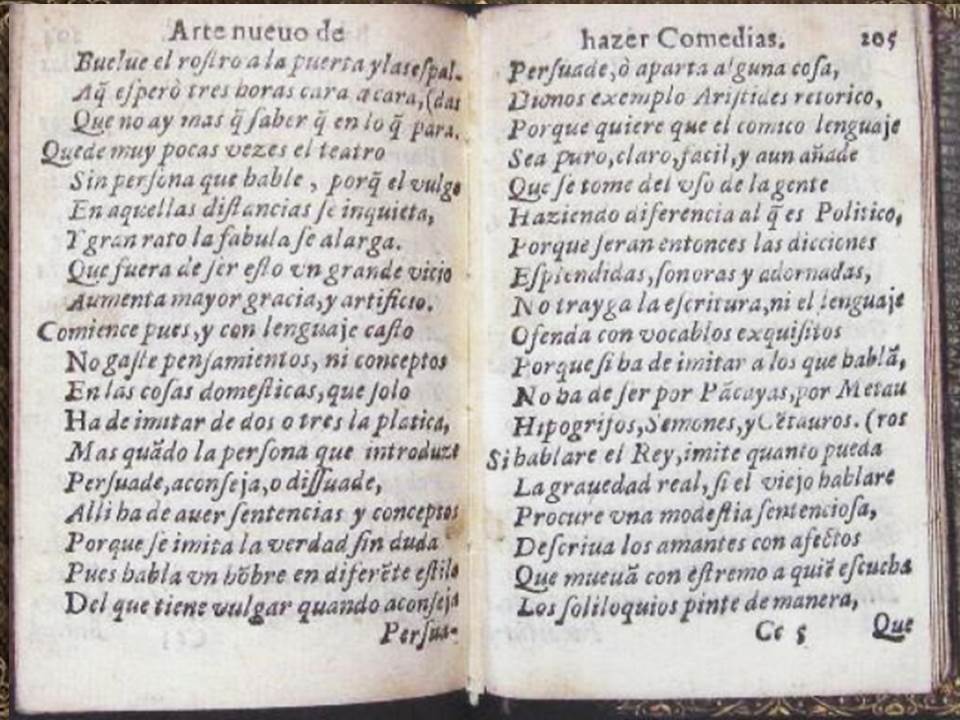 Arte nueuo de
Buelue el roſtro a la puerta y las eſpal-
Aq̃ eſperò tres horas cara a cara, (das
Que no ay mas q̃ ſaber q̃ en lo q̃ para.
Quede muy pocas vezes el teatro
Sin perſona que hable, porq̃ el vulgo
En aquellas diſtancias ſe inquieta,
Y gran rato la fabula ſe alarga.
Que fuera de ſer eſto vn grande vicio
Aumenta mayor gracia, y artificio.
Comience pues, y con lenguaje caſto
No gaſte penſamientos, ni conceptos
En las coſas domeſticas, que ſolo
Ha de imitar de dos o tres la platica,
Mas quãdo la perſona que introduze
Perſuade, aconſeja, o diſſuade,
Alli ha de auer ſentencias y conceptos
Porque ſe imita la verdad ſin duda
Pues habla vn hõbre en diferẽte eſtilo
Del que tiene vulgar quando aconſeja
Perſua-
hazer Comedias. 205
Perſuade, ò aparta alguna coſa,
Dionos exemplo Ariſtides retorico,
Porque quiere que el comico lenguaje
Sea puro, claro, facil, y aun añade
Que ſe tome del vſo de la gente
Haziendo diferencia al q̃ es Politico,
Porque ſeran entonces las dicciones
Eſplendidas, ſonoras y adornadas,
No trayga la eſcritura, ni el lenguaje
Ofenda con vocablos exquiſitos
Porque ſi ha de imitar a los que hablã,
No ha de ſer por Pãcayas, por Metau
Hipogrifos, Semones, y Cẽtauros. (ros
Si hablare el Rey, imite quanto pueda
La grauedad real, ſi el viejo hablare
Procure vna modeſtia ſentencioſa,
Deſcriua los amantes con afectos
Que mueuã con eſtremo a quiẽ eſcucha
Los ſoliloquios pinte de manera,
Cc 5 Que